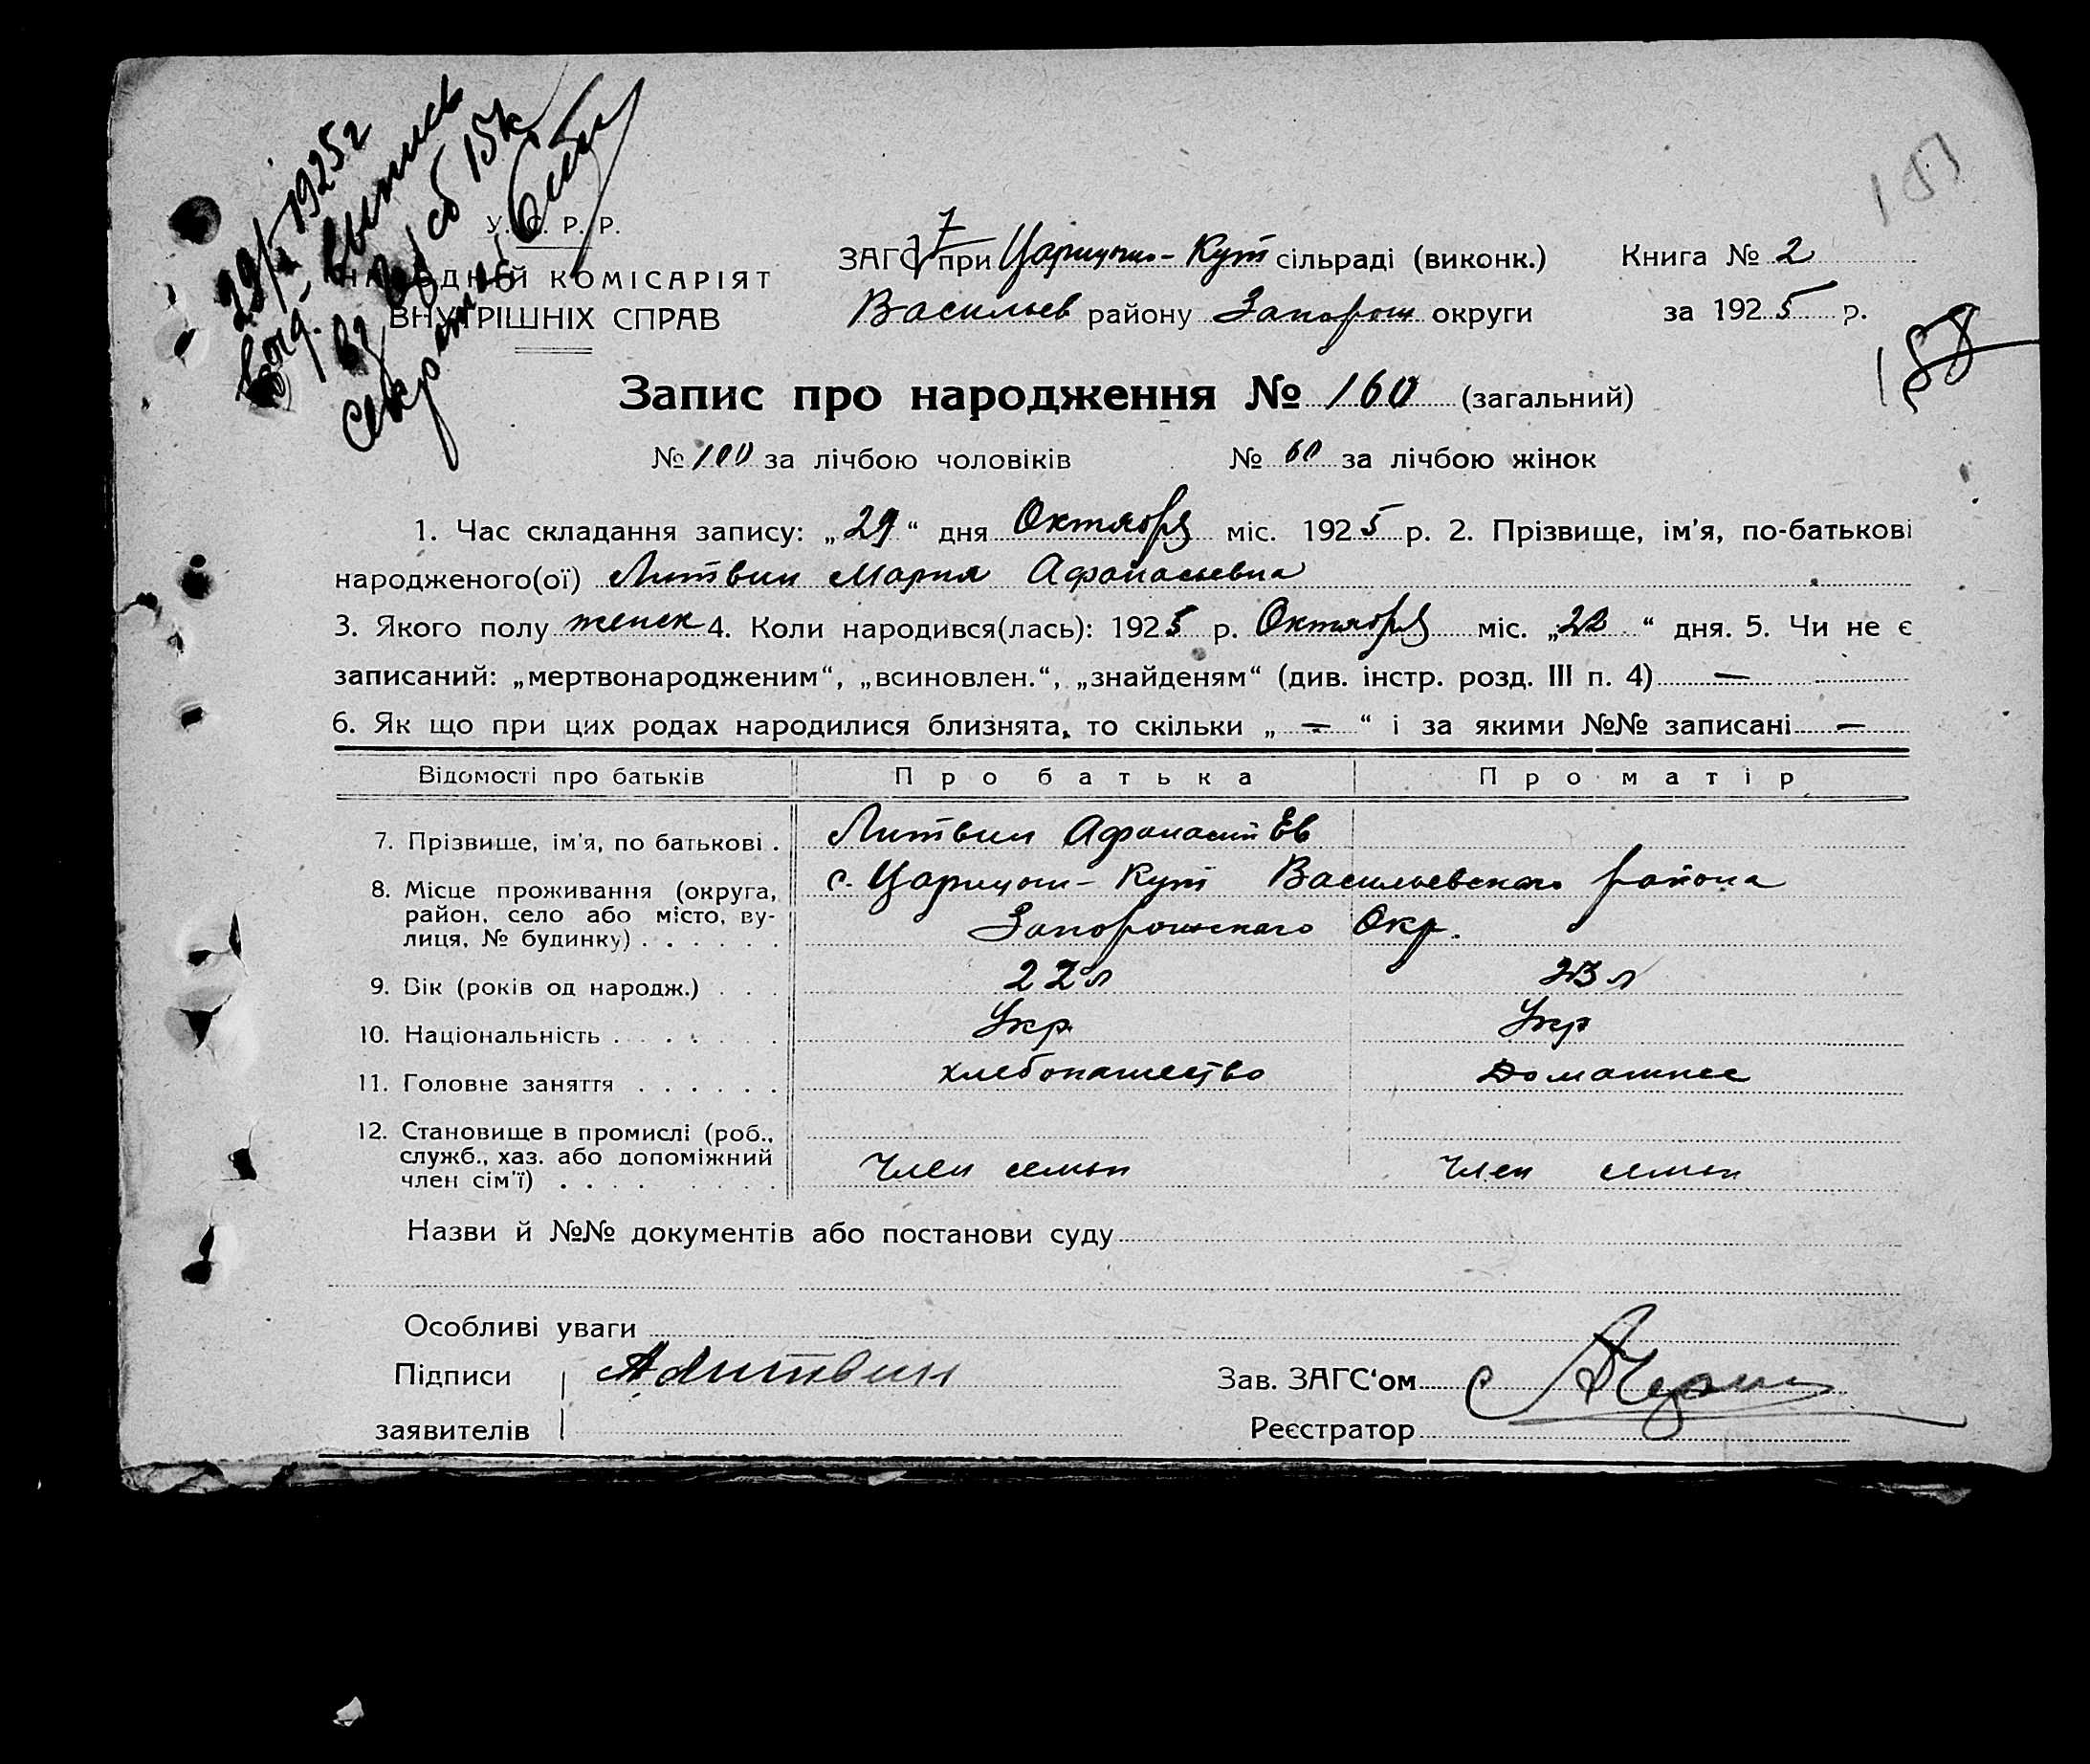 29/X 1925 г
выпись
сб 15 к
У. С. Р. Р.
НАРОДНІЙ КОМІСАРІЯТ
ВНУТРІШНІХ СПРАВ
ЗАГС при Царицын-Кут сільраді (виконк.)
Васильев району Запорож округи
Книга № 2
за 1925 р.
188
Запис про народження № 160 (загальний)
№ 100 за лічбою чоловіків № 60 за лічбою жінок
1. Час складання запису: „29“ дня Октября міс. 1925 р. 2. Прізвище, ім'я, по-батькові
народженого(ої) Литвин Мария Афанасьевна
3. Якого полу женск 4. Коли народився(лась): 1925 р. Октября міс. „22“ дня. 5. Чи не є
записаний: „мертвонародженим“, „всиновлен.“, „знайденям“ (див. інстр. розд. III п. 4) —
6. Як що при цих родах народилися близнята, то скільки „ — “ і за якими №№ записані —
Відомості про батьків Про батька Про матір
7. Прізвище, ім'я, по батькові . Литвин Афанасий Ев
8. Місце проживання (округа, с. Царицын-Кут Васильевского района
район, село або місто, ву-
лиця, № будинку) . . . . . . Запорожского Окр.
9. Вік (років од народж.) . . . 22 л 23 л
10. Національність . . . . . . . Укр. Укр
11. Головне заняття . . . . . . хлебопашество Домашнее
12. Становище в промислі (роб.,
служб., хаз. або допоміжний Член семьи Член семьи
член сім'ї) . . . . . . . .
Назви й №№ документів або постанови суду
Особливі уваги
Підписи А Литвин Зав. ЗАГС'ом
заявителів Реєстратор